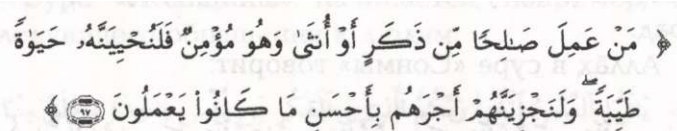 ﴿ مَنْ عَمِلَ صَـٰلِحًا مِن ذَكَرٍ أَوْ أُنثَىٰ وَهُوَ مُؤْمِنٌ فَلَنُحْيِيَنَّهُۥ حَيَوٰةً
طَيِّبَةً ۖ وَلَنَجْزِيَنَّهُمْ أَجْرَهُم بِأَحْسَنِ مَا كَانُوا۟ يَعْمَلُونَ ٩٧ ﴾